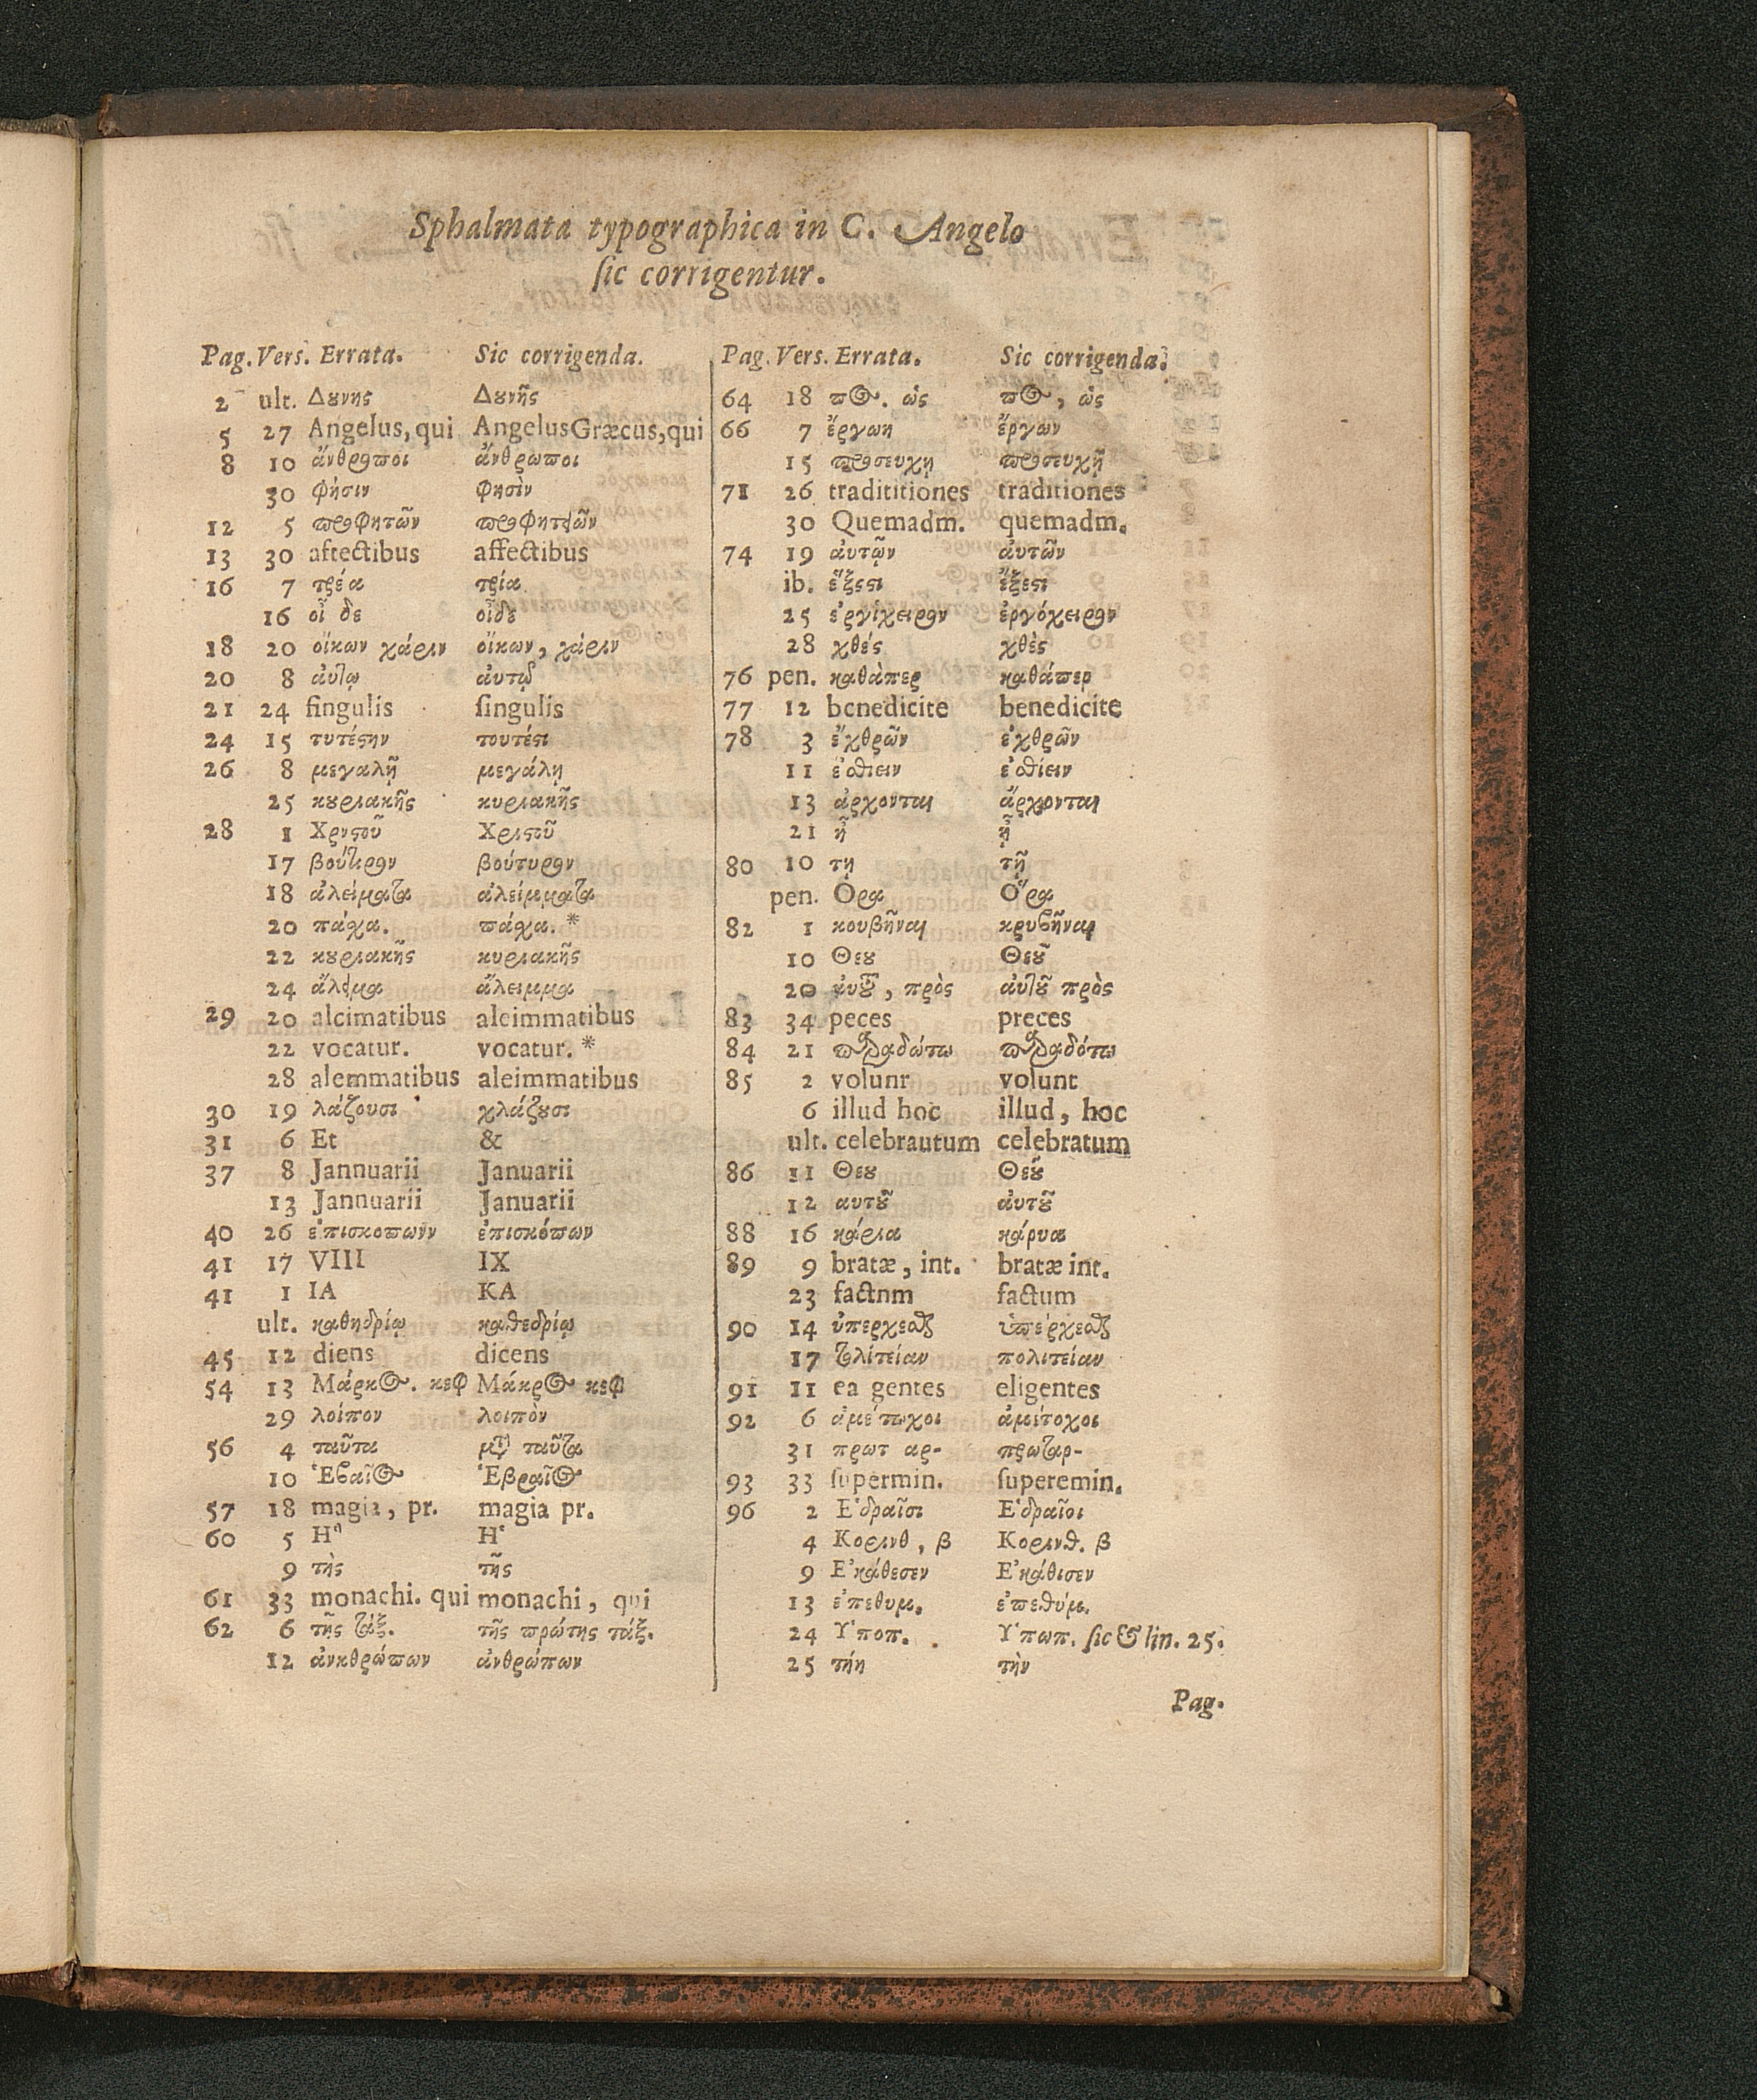 Sphalmata typographica in C. Angelo
ſic corrigentur.
Pag. Vers. Errata. Sic corrigenda.
2 ult. Δȣνης Δȣνῆς
5 27 Angelus, qui Angelus Græcus, qui
8 10 ἄνθρωποι ἄνθρωποι
30 φήσιν φησὶν
12 5 ϖροφητῶν
13 30 aftectibus affectibus
16 7 τρέα τρία
16 οἵ δε οἵδε
18 20 οἴκων χάριν οἴκων, χάριν
20 8 ἀυτω ἀυτῷ
21 24 ſingulis ſingulis
24 15 τυτέϛην τουτέϛι
26 8 μεγαλῇ μεγάλη
25 κȣριακῆς κυριακῆς
28 1 Χρνϛοῦ Χριϛοῦ
17 βούτιρον βούτυρον
18 ἀλείματα ἀλείμματα
20 πάχα. ϖάχα. *
22 κȣριακῆς κυριακῆς
24 ἄλειμμα
29 20 alcimatibus aleimmatibus
22 vocatur. vocatur. *
28 alemmatibus aleimmatibus
30 19 λάζουσι χλάζȣσι
31 6 Et &
37 8 Jannuarii Januarii
13 Jannuarii Januarii
40 26 ἐπισκοϖωνν ἐπισκόπων
41 17 VIII IX
41 1 ΙΑ ΚΑ
ult. καθηδρίῳ καθεδρίῳ
45 12 diens dicens
54 13 Μάρκος. κεφ Μάκρος κεφ
29 λοίπον λοιπὸν
56 4 ταῦτα μετὰ ταῦτα
10 Ἑβαῖος Ἑβραῖος
57 18 magia, pr. magia pr.
60 5 Η῞ Η῾
9 τὴς τῆς
61 33 monachi. qui monachi, qui
62 6 τῆς τάξ. τῆς ϖρώτης τάξ.
12 ἀνκθρώϖων ἀνθρώπων
Pag. Vers. Errata. Sic corrigenda.
64 18 ϖος. ὡς ϖος, ὡς
66 7 ἔργωη ἔργων
15 ϖροσευχη ϖροσευχῇ
71 26 tradititiones traditiones
30 Quemadm. quemadm.
74 19 ἀυτῷν ἀυτῶν
ib. ἔξεϛι
25 ἐργίχειρον ἐργόχειρον
28 χθές χθὲς
76 pen. καθὰπερ καθάϖερ
77 12 bcnedicite benedicite
78 3 ἔχθρῶν ἐχθρῶν
11 ἐσθιειν ἐσθίειν
13 ἀρχονται ἄρχονται
21 ἦ ᾖ
80 10 τη τῇ
pen. Ὀρα Ὅρα
82 1 κουβῆναι κρυβῆναι
10 Θεȣ Θεȣ͂
20 ἀυτȣ͂, πρὸς ἀυτȣ͂ πρὸς
83 34 peces preces
84 21 ϖαραδώτω ϖαραδότω
85 2 volunr volunt
6 illud hoc illud, hoc
ult. celebrautum celebratum
86 11 Θεȣ Θεȣ͂
12 αυτȣ͂ ἀυτȣ͂
88 16 κάρια κάρυα
89 9 bratæ, int. bratæ int.
23 factnm factum
90 14 ὑπερχεσθ ὑϖέρχεσθ
17 πολιτείαν
91 11 ea gentes eligentes
92 6 ἀμέτωχοι ἀμέτοχοι
31 πρωτ αρ- πρωταρ-
93 33 ſupermin. ſuperemin.
96 2 Ἑβραῖσι Ἑβραῖοι
4 Κορινθ, β Κορινθ. β
9 Ἐκάθεσεν Ἐκάθισεν
13 ἐπεθυμ. ἐϖεθύμ.
24 Ὑποπ. Ὑπωπ. ſic & lin. 25.
25 τήη τὴν
Pag.